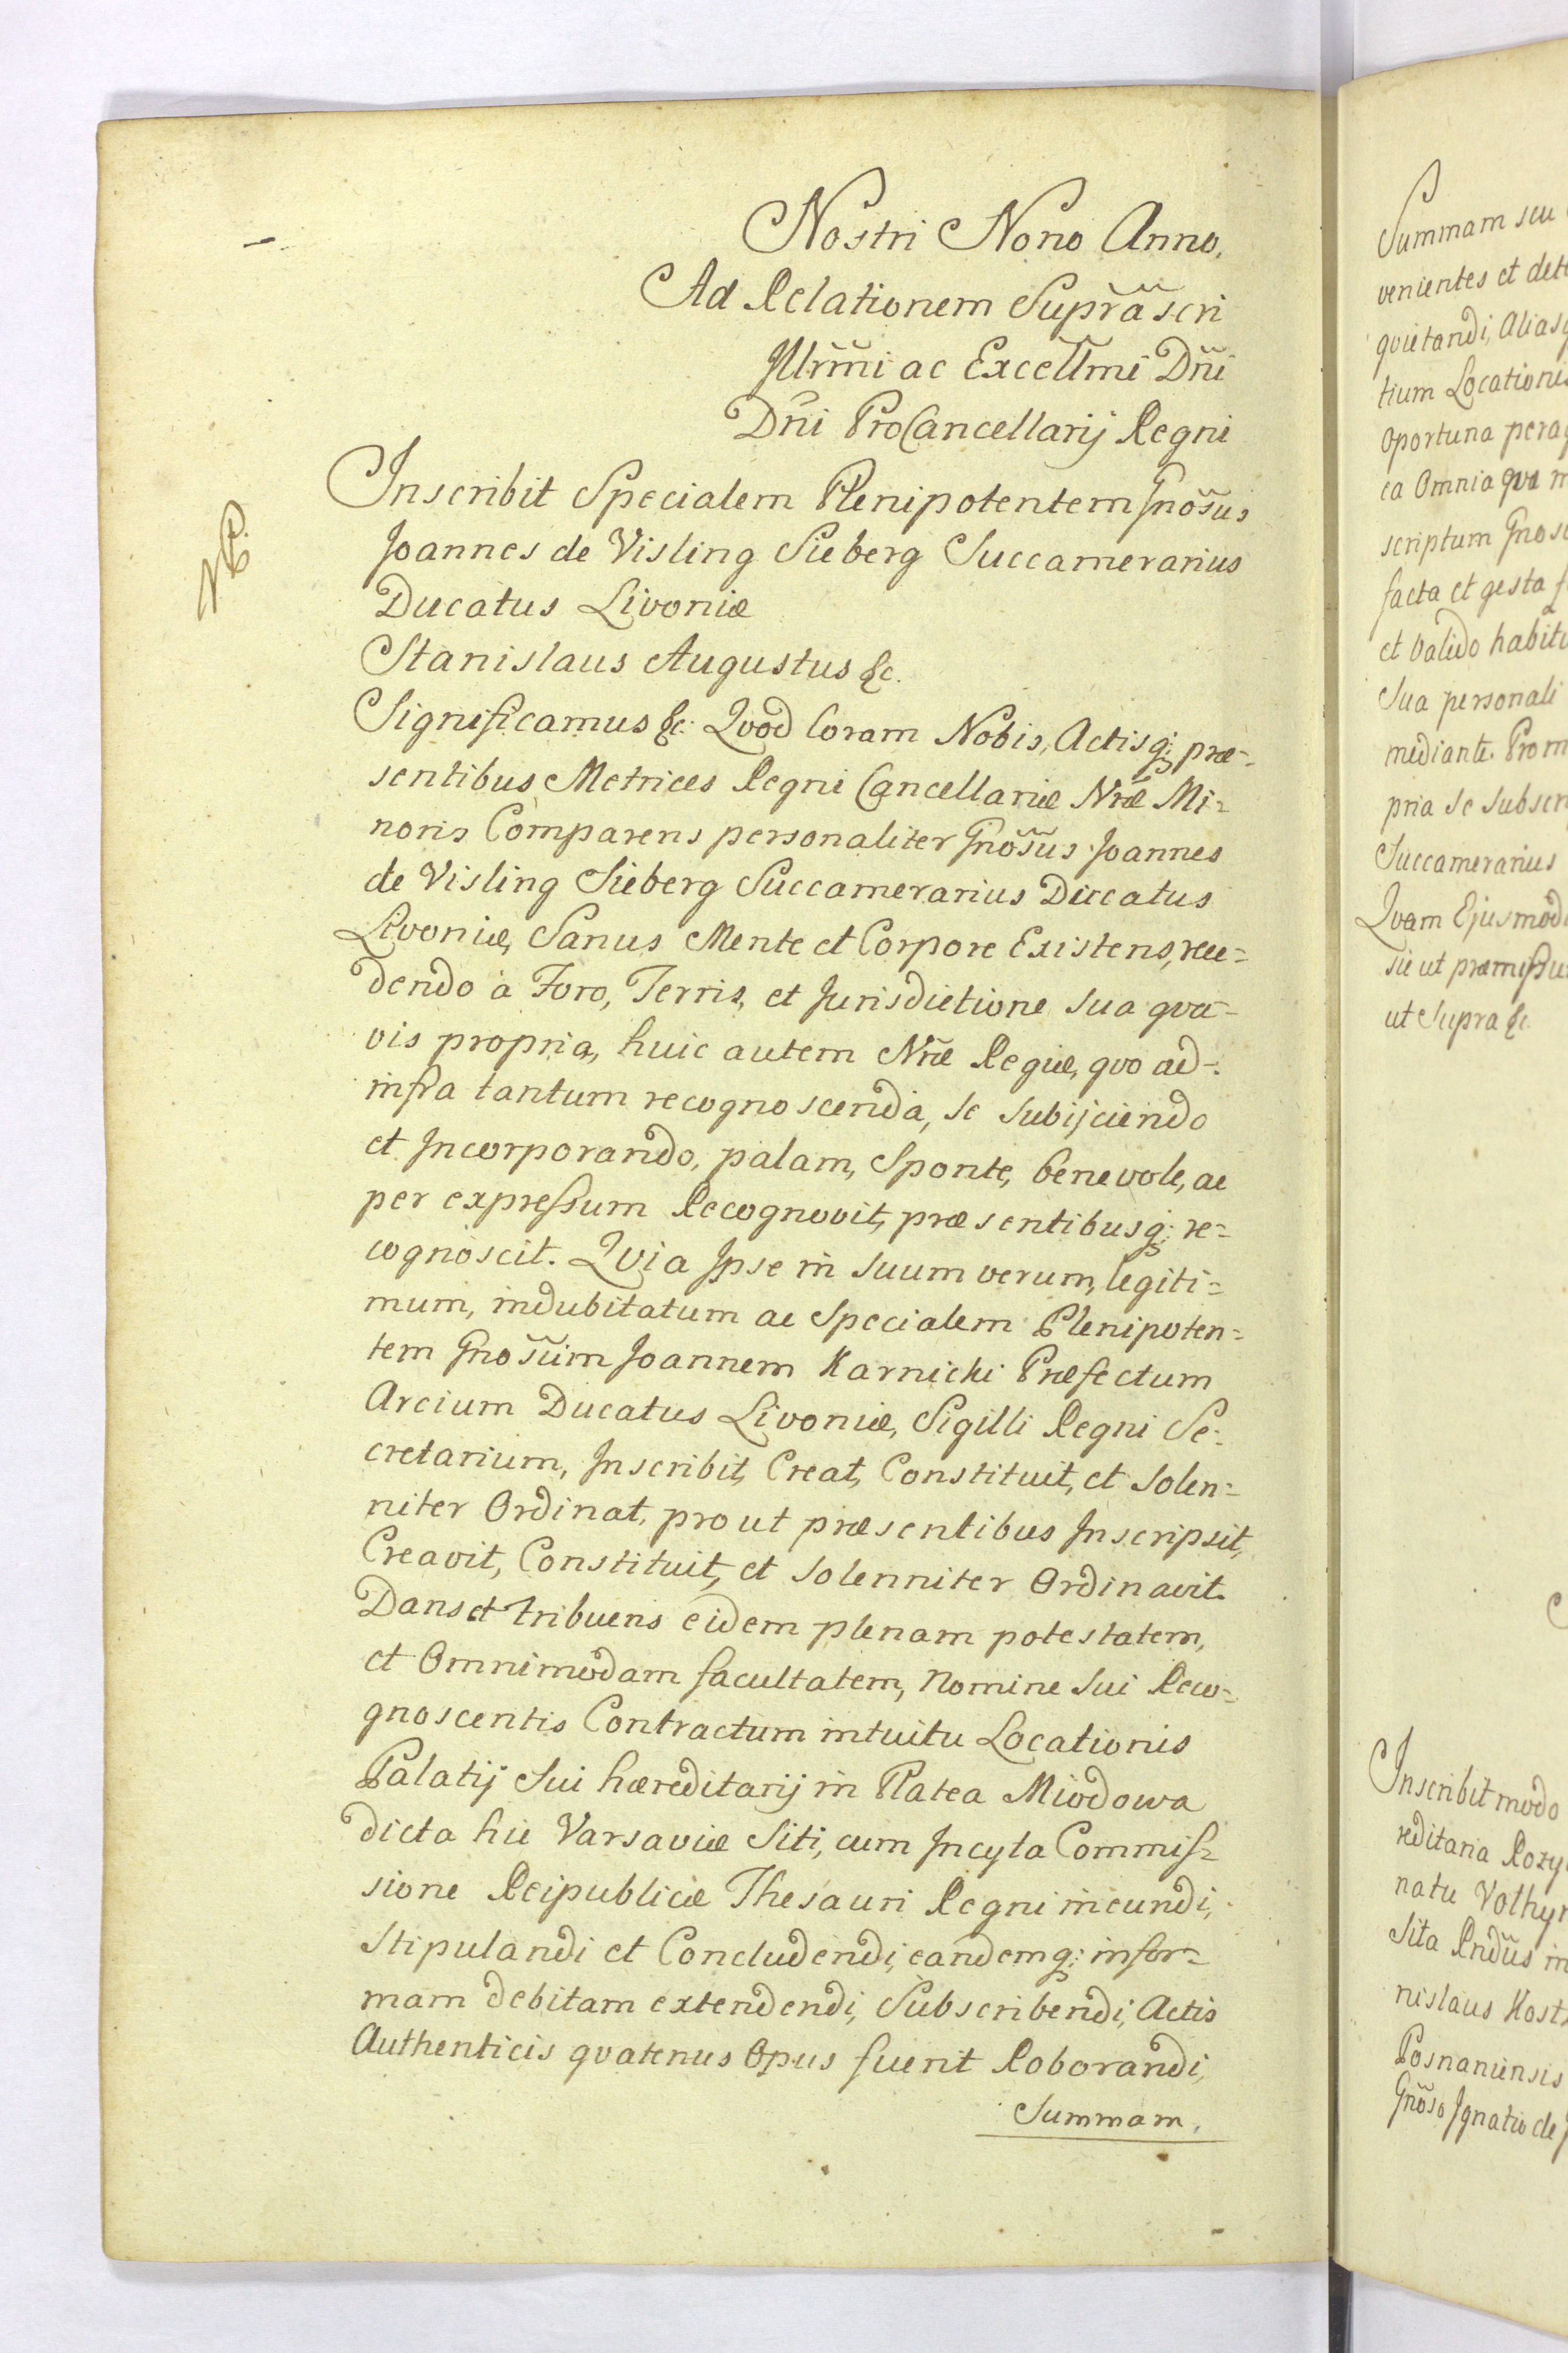 Nostri Nono Anno.
Ad Relationem Suprascri
Illrm̃i ac Excell̃mi Dñi
Dñi ProCancellarij Regni
Inscribit Specialem Plenipotentem Gnõsus
Joannes de Visling Sieberg Succamerarius
Ducatus Livoniæ
NP.
Stanislaus Augustus &c.
Significamus &c: Qvod Coram Nobis, Actisq; præ-
sentibus Metrices Regni Cancellariæ Nr̃æ Mi-
noris Comparens personaliter Gnõsus Joannes
de Visling Sieberg Succamerarius Ducatus
Livoniæ, Sanus Mente et Corpore Existens, rece-
dendo à Foro, Terris, et Jurisdictione sua qva-
vis propria, huic autem Nr̃æ Regiæ, qvo ad-
infra tantum recognoscenda, se subijciendo
et Incorporando, palam, Sponte, benevole, ac
per expressum Recognovit, præsentibusq; re-
cognoscit. Qvia Ipse in suum verum, legiti-
mum, indubitatum ac Specialem Plenipoten-
tem Gnosũm Joannem Karnicki Præfectum
Arcium Ducatus Livoniæ, Sigilli Regni Se-
cretarium, Inscribit, Creat, Constituit, et solen-
niter Ordinat, prout præsentibus Inscripsit,
Creavit, Constituit, et solenniter Ordinavit.
Dans et tribuens eidem plenam potestatem,
et Omnimodam facultatem, Nomine sui Reco-
gnoscentis Contractum intuitu Locationis
Palatij Sui hæreditarij in Platea Miodowa
dicta hic Varsaviæ Siti, cum Incyta Commis-
sione Reipublicæ Thesauri Regni ineundi,
Stipulandi et Concludendi, eandemq; in for-
mam debitam extendendi, Subscribendi, Actis
Authenticis qvatenus Opus fuerit Roborandi,
Summam.
Summam seu
venientes et det
qvietandi, Alias
tium Locationis
Oportuna perag
ea Omnia qva
scriptum Gnos
facta et gesta
et valido habit
Sua personali
mediante. Prom
pria se subscr
Succamerarius
Qvam Ejusmodi
sic ut præmissu
ut Supra &c.
Inscribit modo
reditaria Rozy
natu Volhyn
Sita Rndũs in
nislaus Kost
Posnaniensis
Gnõso Ignatio de